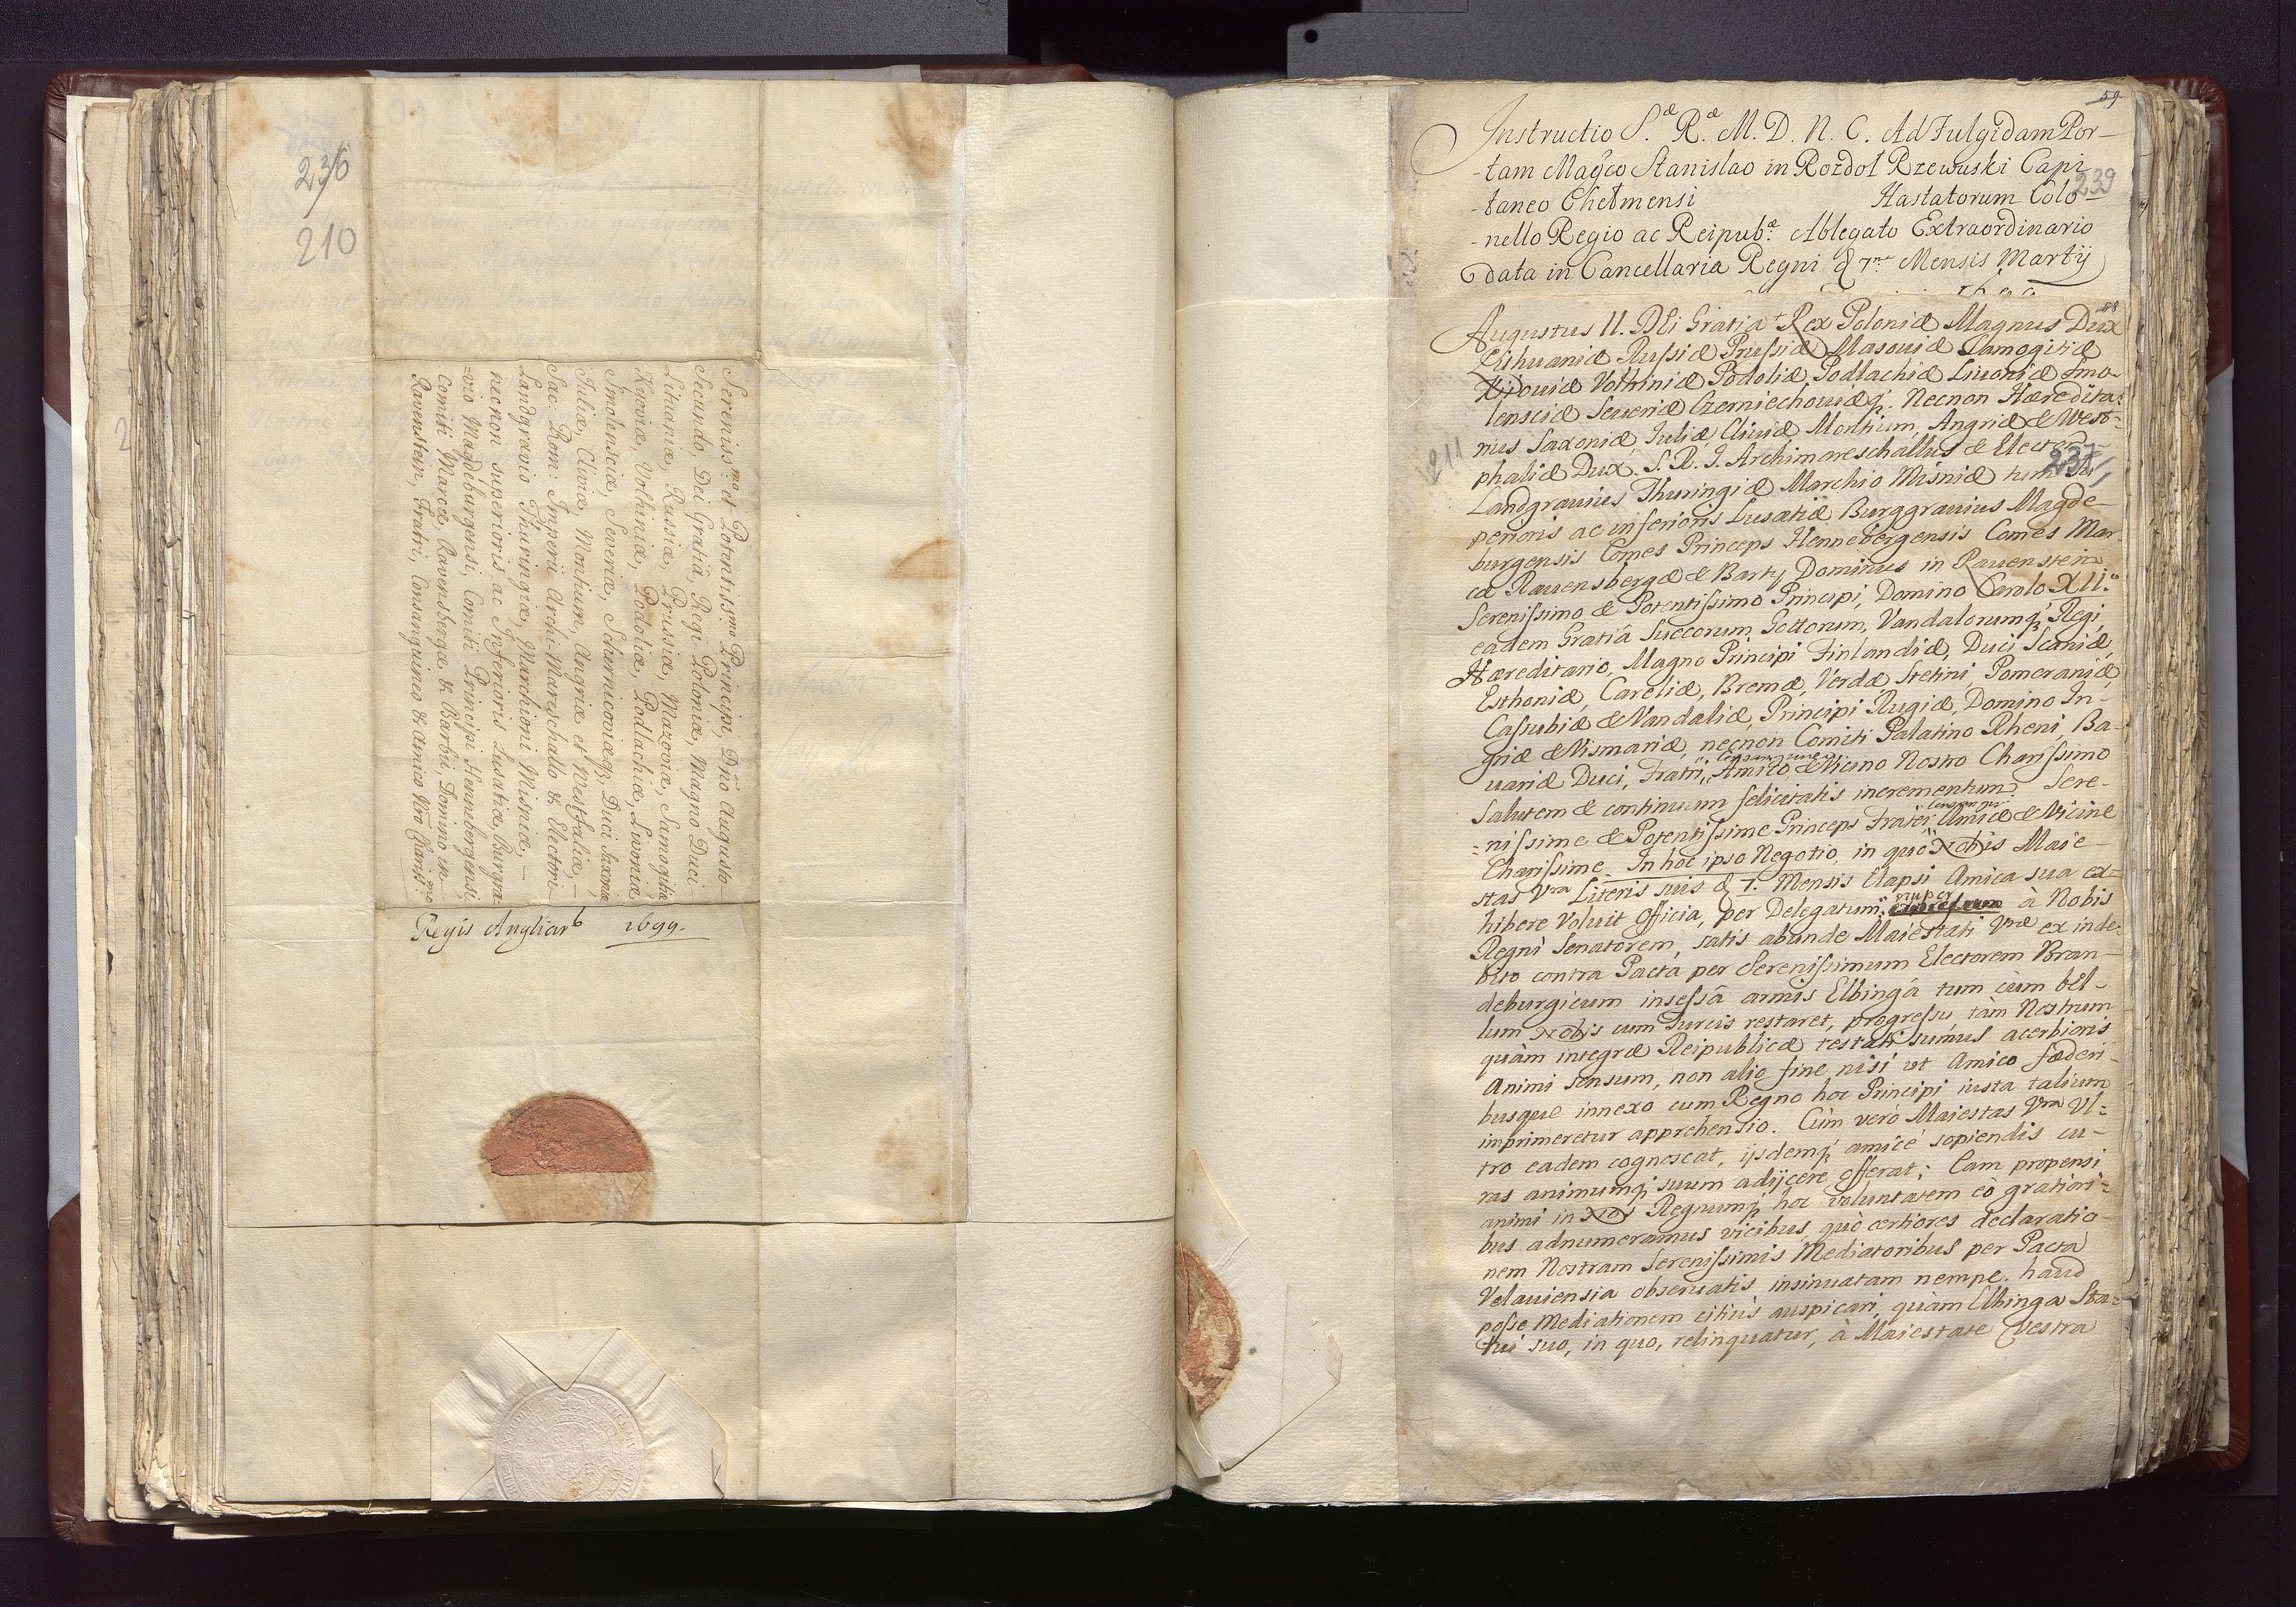 236
210
Sereniss.mo et Potentiss.mo Principi, Dno Augusto
Secundo, Dei Gratiâ, Regi Poloniæ, Magno Duci
Lithuaniæ, Russiæ, Prussiæ, Mazoviæ, Samogitiæ
Kyoviæ, Volhiniæ, Podoliæ, Podlachiæ, Livoniæ
Smolensciæ, Severiæ, Schernicoviæq;, Duci Saxoniæ
Juliæ, Cliviæ, Montium, Angriæ et Westfaliæ, –
Sac: Rom: Imperii Archi-Mareschallo & Electori –
Landgravio Thuringiæ, Marchioni Misniæ, –
necnon superioris ac Inferioris Lusatiæ, Burgra-
=vio Magdeburgensi, Comiti Principi Hennebergensi,
Comiti Marcæ, Ravensbergæ & Barbii, Domino in
Ravenstein, Fratri, Consanguineo & Amico Nrõ Chariss:mo
Regis Angliar 1699.
59
Instructio S.æ R.æ M. D. N. C. Ad Fulgidam Por-
-tam Magco Stanislao in Rozdoł Rzewuski Capi
239
-taneo Chełmensi Hastatorum Colo-
-nello Regio ac Reipub.æ Ablegato Extraordinario
data in Cancellaria Regni d 7ma Mensis Martij
58
Augustus II. DEi Gratia Rex Poloniæ Magnus Dux
Lithuaniæ Russiæ Prussiæ Masouiæ Samogitiæ
Kijouiæ Volhiniæ Podoliæ Podlachiæ Liuoniæ Smo-
lensciæ Seueriæ Czerniechouiæq; Necnon Hæredita-
rius Saxoniæ, Juliæ Cliuiæ Montium, Angriæ & West-
211
phaliæ Dux. S. R. I. Archimareschallus & Elector
237
Landgrauius Thuringiæ Marchio Misniæ tum Su
perioris ac inferioris Lusatiæ Burggrauius Magde-
burgensis Comes Princeps Hennebergensis Comes Mar
cæ Rauensbergæ & Barty Dominus in Rauenstein
Serenissimo & Potentissimo Principi, Domino Carolo XII.o
eadem Gratiâ Suecorum Gottorum, Vandalorumq; Regi,
Hæreditario, Magno Principi Finlandiæ, Duci Scaniæ,
Esthoniæ, Careliæ, Bremæ, Verdæ, Stetini, Pomeraniæ,
Cassubiæ & Vandaliæ, Principi Rugiæ, Domino In-
griæ & Vismariæ, necnon Comiti Palatino Rheni, Ba-
uariæ Duci, Fratri, Amico & Vicino Nostro Charissimo
Salutem & continuum felicitatis incrementum. Sere-
=nissime & Potentissime Princeps Frater Amice & Vicine
Charissime. In hoc ipso Negotio, in quo Nobis Maie-
stas Vra Literis suis d 7. Mensis Elapsi Amica sua ex-
nuper
hibere voluit officia, per Delegatum à Nobis
Regni Senatorem, satis abunde Maiestati Vræ ex inde-
bito contra Pacta per Serenissimum Electorem Bran-
deburgicum insessâ armis Elbingâ tum cùm bel-
lum Nobis cum Turcis restaret, progressu, tàm Nostrum
quàm integræ Reipublicæ testati sumus acerbioris
Animi sensum, non alio fine nisi vt Amico fœderi-
busque innexo cum Regno hoc Principi iusta talium
imprimeretur apprehensio. Cùm verò Maiestas Vra Vl-
tro eadem cognoscat, ijsdemq; amicè sopiendis cu-
ras animumq; suum adijcere offerat; Eam propensi
animi in Nos Regnumq; hoc voluntatem eò gratiori-
bus adnumeramus vicibus, quò certiores declaratio-
nem Nostram Serenissimis Mediatoribus per Pacta
Velauiensia obseruatis insinuatam nempe, haud
posse Mediationem citiùs auspicari, quàm Elbinga Sta-
tui suo, in quo, relinquatur, à Maiestate Vestra